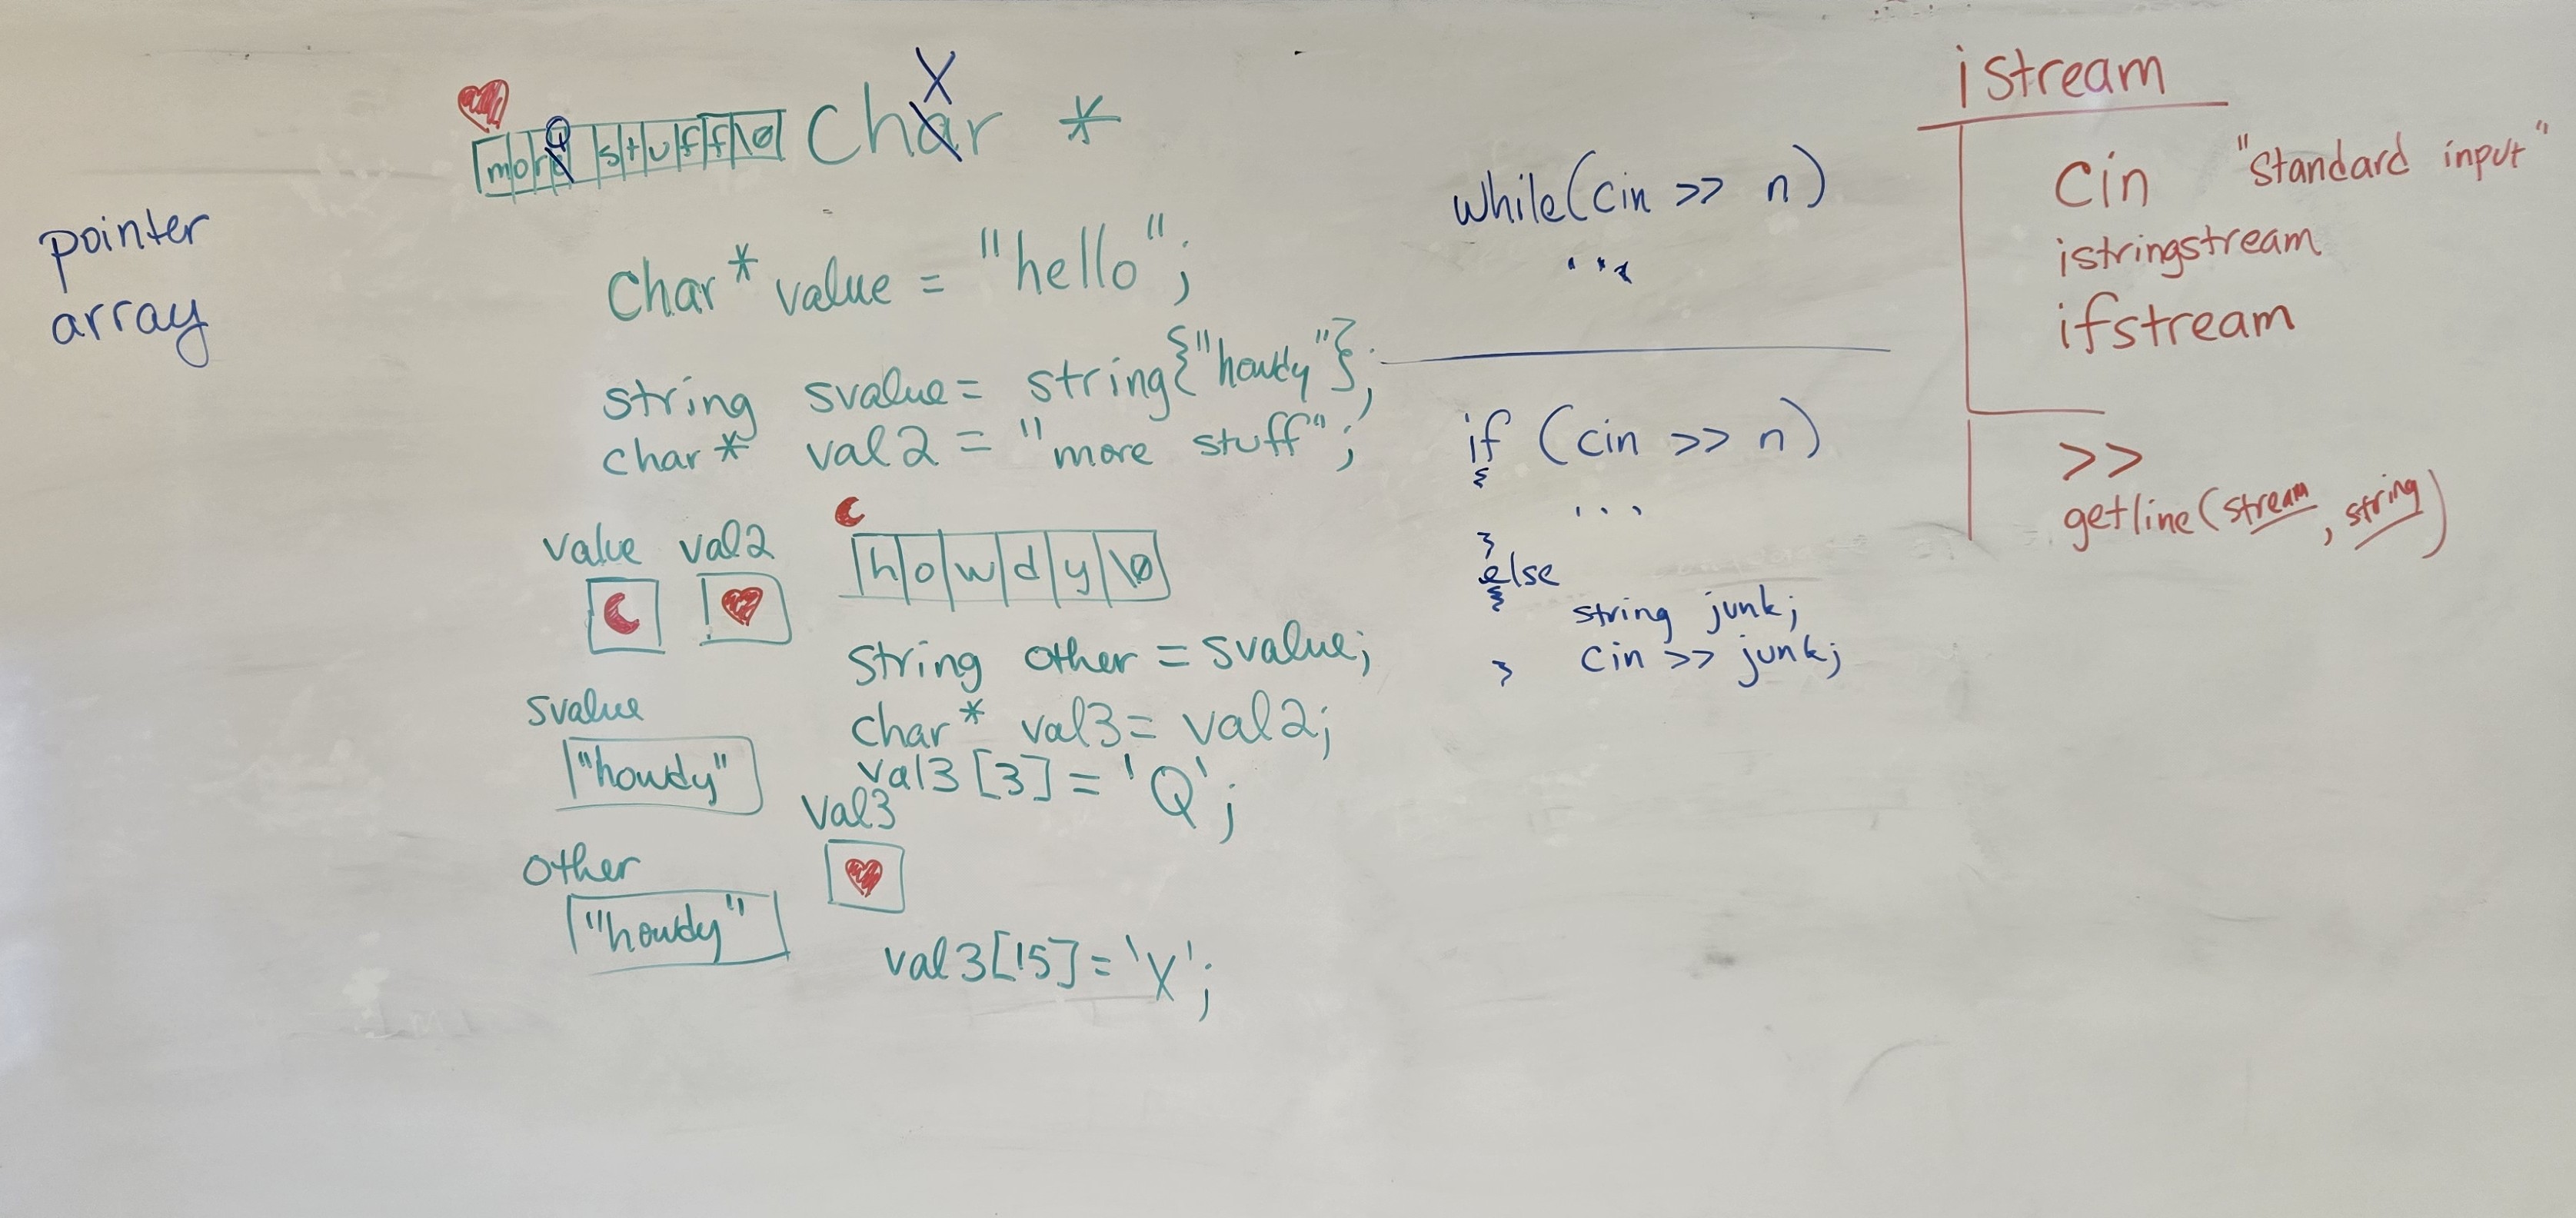 pointer
array
X
more stuff\0 char *
Q
char* value = "hello";
string svalue = string{"howdy"};
char* val2 = "more stuff";
value val2
howdy\0
string other = svalue;
char* val3 = val2;
val3[3] = 'Q';
svalue
"howdy"
val3
other
"howdy"
val3[15] = 'X';
while(cin >> n)
...
if (cin >> n)
{
...
}
else
{
string junk;
cin >> junk;
}
istream
cin "standard input"
istringstream
ifstream
>>
getline(stream, string)